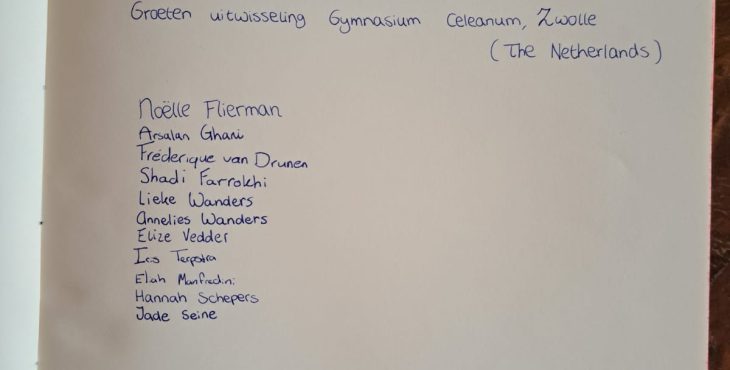 Groeten uitwisseling Gymnasium Celeanum, Zwolle
(The Netherlands)
Noëlle Flierman
Arsalan Ghani
Fréderique van Drunen
Shadi Farrokhi
Lieke Wanders
Annelies Wanders
Elize Vedder
Iris Terpstra
Elah Manfredini
Hannah Schepers
Jade Seine